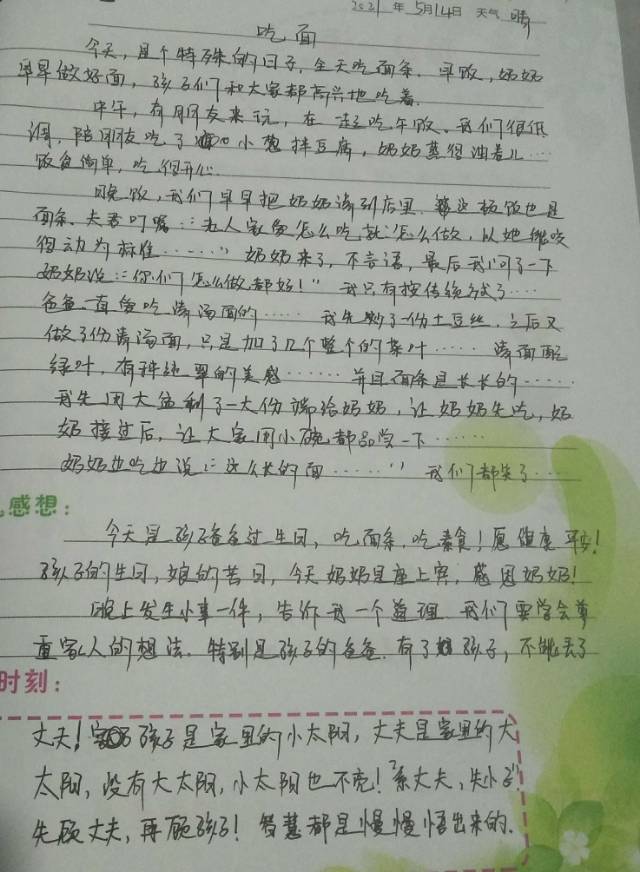 2021年5月14日 天气 晴
吃面
今天,是个特殊的日子,全天吃面条。早饭,奶奶
早早做好面,孩子们和大家都高兴地吃着。
中午,有朋友来玩,在一起吃午饭。我们很低
调,陪朋友吃了 小葱拌豆腐,奶奶蒸得油卷儿……
饭食简单,吃得开心。
晚饭,我们早早把奶奶请到店里。 饭也是
面条。丈君叮嘱:“老人家爱怎么吃就怎么做,以她能咬
得动为标准……” 奶奶来了,不言语,最后我问了一下
奶奶说:“你们怎么做都好!” 我只有按传统方式了…
爸爸一直爱吃清汤面的…… 我先炒了一份土豆丝,之后又
做了份清汤面,只是加了几个整个的菜叶…… 清面配
绿叶,有种翡翠的美感…… 并且面条是长长的……
我先用大盆剩了一大份端给奶奶,让奶奶先吃,奶
奶接过后,让大家用小碗都品尝一下……
奶奶边吃边说:“这么长的面……” 我们都笑了…
感想:
今天是孩子爸爸过生日,吃面条,吃素食!愿健康平安!
孩子的生日,娘的苦日,今天奶奶是座上宾,感恩奶奶!
晚上发生小事一件,告诉我一个道理。我们要学会尊
重家人的想法。特别是孩子的爸爸。有了孩子,不能丢了
时刻:
丈夫! 孩子是家里的小太阳,丈夫是家里的大
太阳,没有大太阳,小太阳也不亮!“亲丈夫,失小子”
先顾丈夫,再顾孩子!智慧都是慢慢悟出来的。